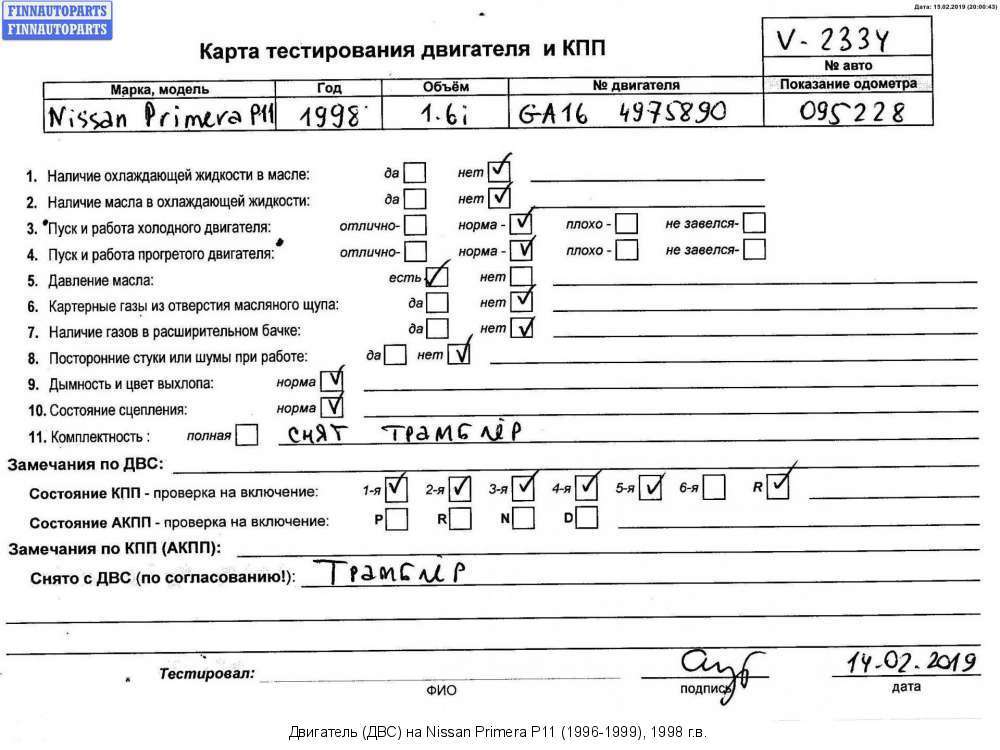 FINNAUTOPARTS
FINNAUTOPARTS
Дата: 15.02.2019 (20:00:43)
Карта тестирования двигателя и КПП
V-2334
№ авто
Марка, модель Год Объём № двигателя Показание одометра
Nissan Primera P11 1998 1.6i GA16 4975890 095228
1. Наличие охлаждающей жидкости в масле: да нет ✓
2. Наличие масла в охлаждающей жидкости: да нет ✓
3. Пуск и работа холодного двигателя: отлично- норма - ✓ плохо - не завелся-
4. Пуск и работа прогретого двигателя: отлично- норма - ✓ плохо - не завелся-
5. Давление масла: есть ✓ нет
6. Картерные газы из отверстия масляного щупа: да нет ✓
7. Наличие газов в расширительном бачке: да нет ✓
8. Посторонние стуки или шумы при работе: да нет ✓
9. Дымность и цвет выхлопа: норма ✓
10. Состояние сцепления: норма ✓
11. Комплектность : полная снят трамблёр
Замечания по ДВС:
Состояние КПП - проверка на включение: 1-я ✓ 2-я ✓ 3-я ✓ 4-я ✓ 5-я ✓ 6-я R ✓
Состояние АКПП - проверка на включение: P R N D
Замечания по КПП (АКПП):
Снято с ДВС (по согласованию!): Трамблёр
Тестировал: 14.02.2019
ФИО подпись дата
Двигатель (ДВС) на Nissan Primera P11 (1996-1999), 1998 г.в.